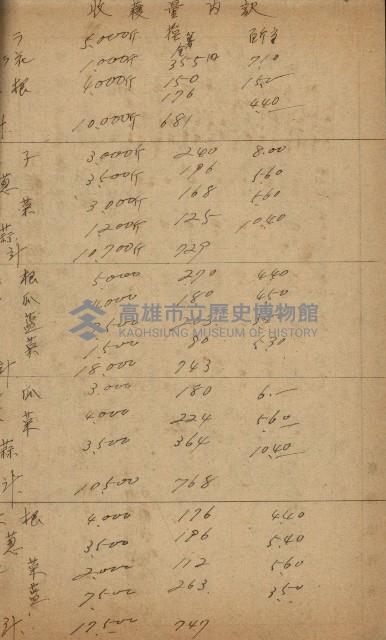 收穫量內訳
5,000斤 710
1,000斤 355円
根 4,000斤 150
176 440
10,000斤 681
子 3,000斤 240 8.00
葱 3,500斤 196 5.60
菜 3,000斤 168 5.60
蒜 1,200斤 125 10.40
計 10,700斤 729
根 5,000 270 440
瓜 180 450
高雄市立歷史博物館
KAOHSIUNG MUSEUM OF HISTORY
菜 1,500 80 5.30
計 18,000 743
瓜 3,000 180 6.—
菜 4,000 224 5.60
蒜 3,500 364 10.40
計 10,500 768
根 4,000 176 440
葱 3,500 196 5.40
菜 2,000 112 5.60
藍 7,500 263 3.50
計 17,500 747